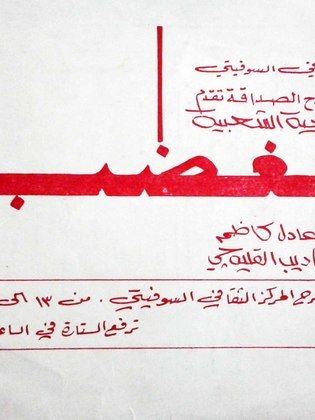 في السوفيتي
ح الصداقة تقدم
حية الشعبية
غضب
عادل كاظم
اديب القليه چي
رح المركز الثقافي السوفيتي . من ١٣ الى
ترفع الستارة في الساع